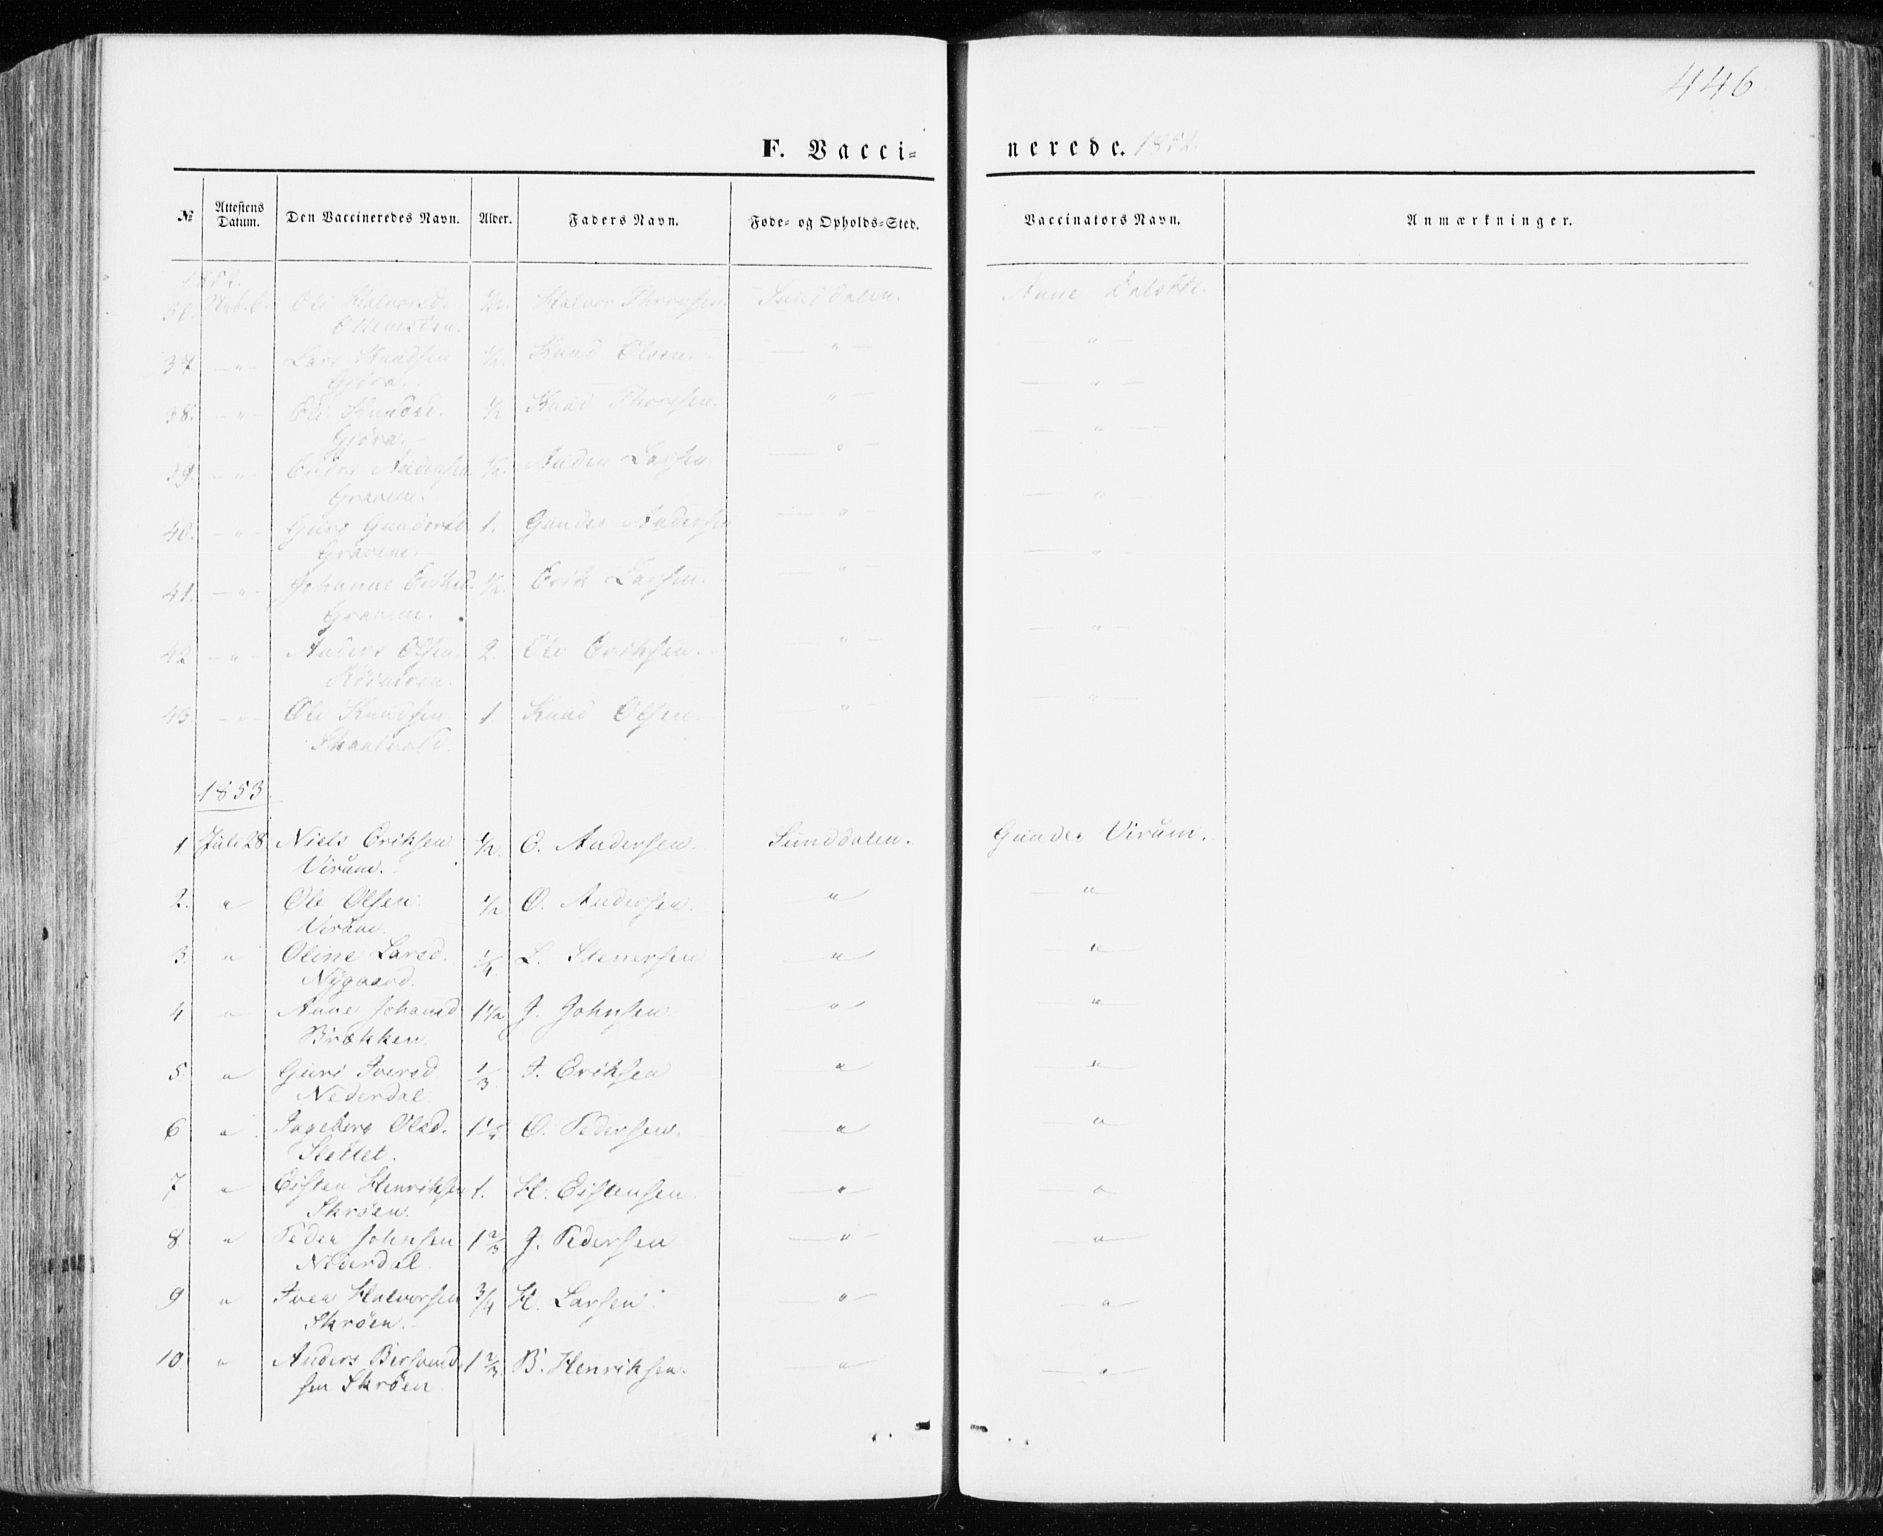 446
F. Vaccinerede. 1852.
№ Attestens Datum. Den Vaccineredes Navn. Alder. Faders Navn. Føde- og Opholds-Sted. Vaccinators Navn. Anmærkninger.
1852.
Ole Halvorsd. 1/2. Halvor Sunddalen. Anne
37 — " — Lars Knudsen 1/2. Knud Olsen. — " — — " —
Gjøra.
38. — " — Ole Knuds. 1/2 Knud — " — — " —
Gjøra.
39. — " — Andersen 1/2. Anders Larsen. — " — — " —
Gravem.
40. — " — Guri Gundersd. 1. Gunder Andersen — " — — " —
Gravem.
41. — " — Johanne Eriksd. 1/2. Erik Larsen. — " — — " —
Gravem.
42 — " — Anders Olsen 2. Ole Eriksen. — " — — " —
43. — " — Ole Knudsen 1. Knud Olsen. — " — — " —
1853
1 Juli 28 Niels Eriksen 1/2 O. Andersen. Sunddalen. Gunder Virum.
Virum.
2. " Ole Olsen 1/2 O. Andersen. — " — — " —
Virum.
3. " Oline Larsd. 1/4 L. Stenersen — " — — " —
Nygaard.
4 " Anne Johansd. 1 1/2 J. Johnsen — " — — " —
Brækken.
5. " Guri Iversd 1/3 I. Eriksen — " — — " —
Nederdal
6 " Ingeborg Olsd. O. Pedersen. — " — — " —
Slettet.
7 " Eisten Henriksen 1. H. Eistensen — " — — " —
Skrøen.
8 " Peder Johnsen 1 2/3 J. Pedersen — " — — " —
Nederdal.
9 " Iver Halvorsen 3/4 H. Larsen — " — — " —
Skrøen.
10. " Anders Bersvend- 1 2/3 B. Henriksen. — " — — " —
sen Skrøen.